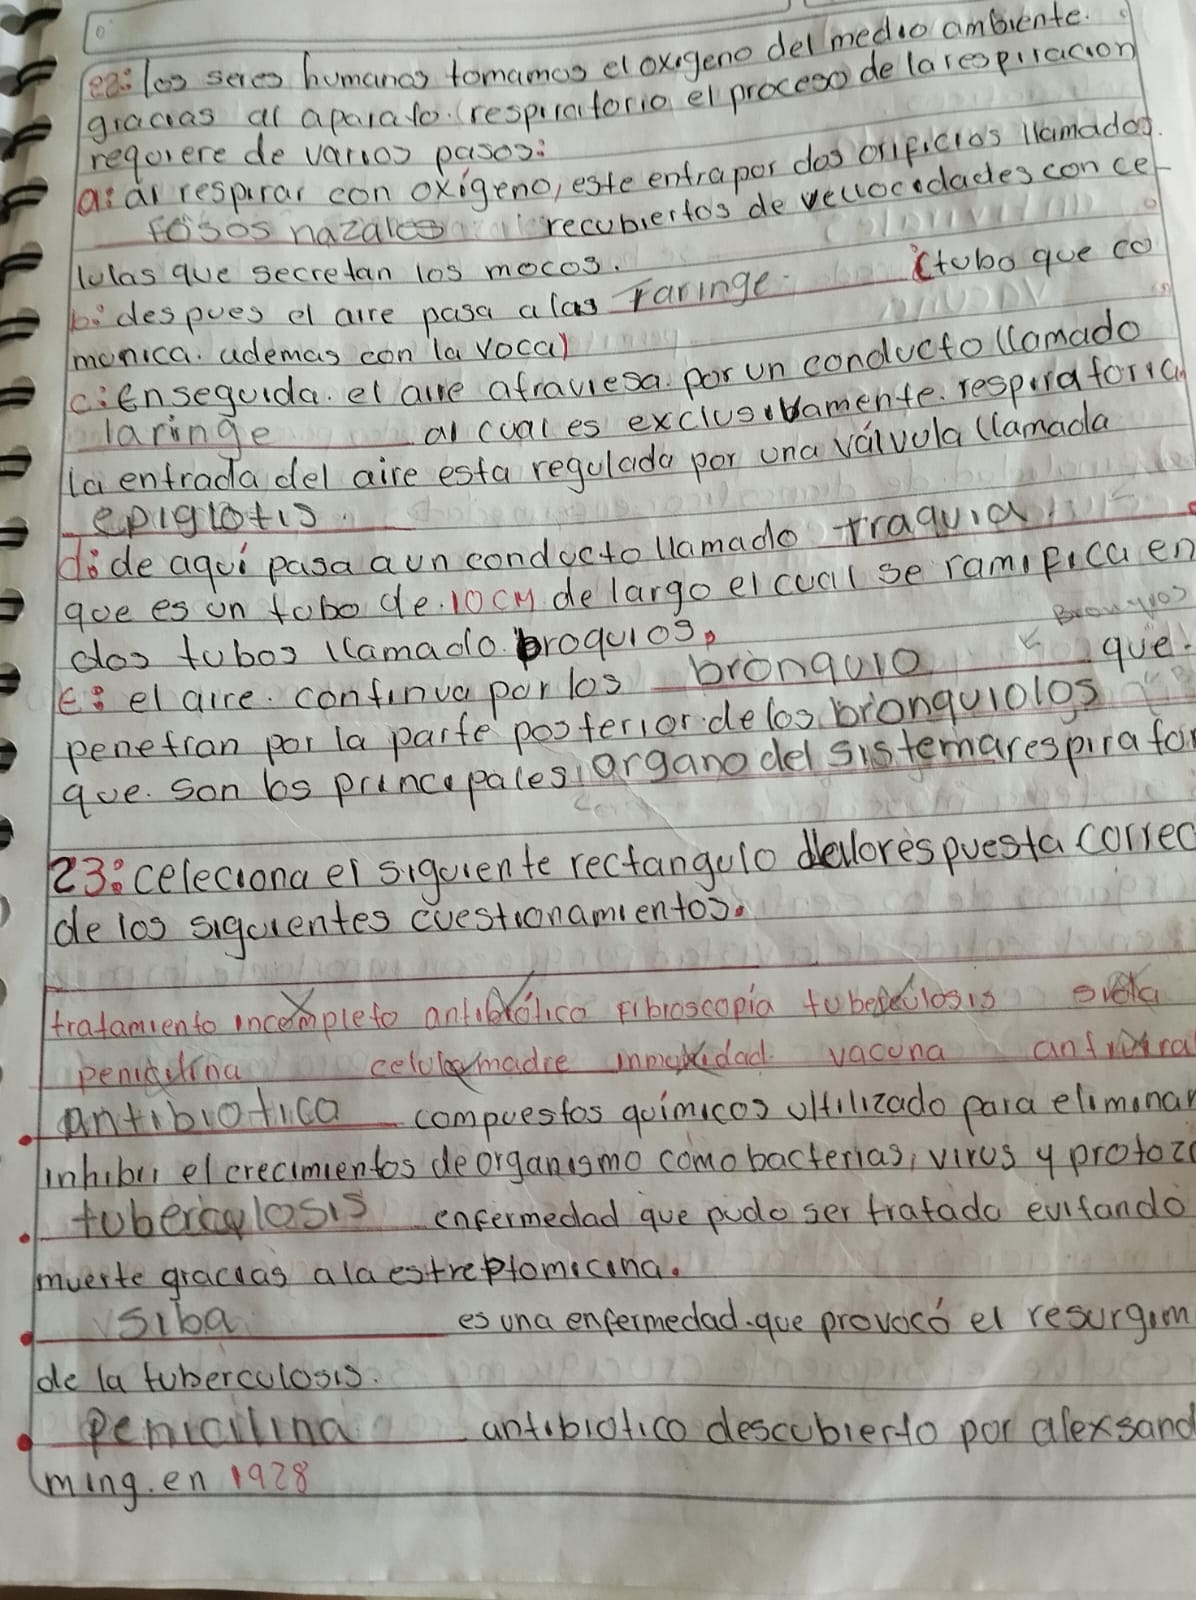 22: los seres humanos tomamos el oxigeno del medio ambiente.
gracias al aparato. respiratorio el proceso de la respiracion
requiere de varios pasos:
a: al respirar con oxígeno, este entra por dos orificios llamados.
fosos nazales recubiertos de vellocidades con ce-
lulas que secretan los mocos.
b: despues el aire pasa a las Faringe. (tubo que co
munica. ademas con la voca)
c: Enseguida. el aire atraviesa. por un conducto llamado
laringe al cual es exclusivamente. respiratoria
la entrada del aire esta regulada por una válvula llamada
epiglotis.
d: de aquí pasa a un conducto llamado traquia
que es un tubo de. 10 CM de largo el cual se ramifica en
dos tubos llamado broquios,
Bronquios
E: el aire. continua por los bronquio que.
penetran por la parte posterior de los bronquiolos
que. son los princepales organo del sistema respirator
23: celeciona el siguiente rectangulo de lo respuesta correc
de los siguientes cuestionamientos.
tratamiento incompleto antibiótico Fibroscopía tuberculosis
penicilina celula madre inmunidad vacuna antivira
antibiotica compuestos químicos ultilizado para eliminar
inhibir el crecimientos de organismo como bacterias, virus y protozo
tuberculosis enfermedad que pudo ser tratado evitando
muerte gracias a la estreptomicina.
siba es una enfermedad. que provocó el resurgim
de la tuberculosis.
Penicilina antibiotico descubierto por alexsand
ming. en 1928